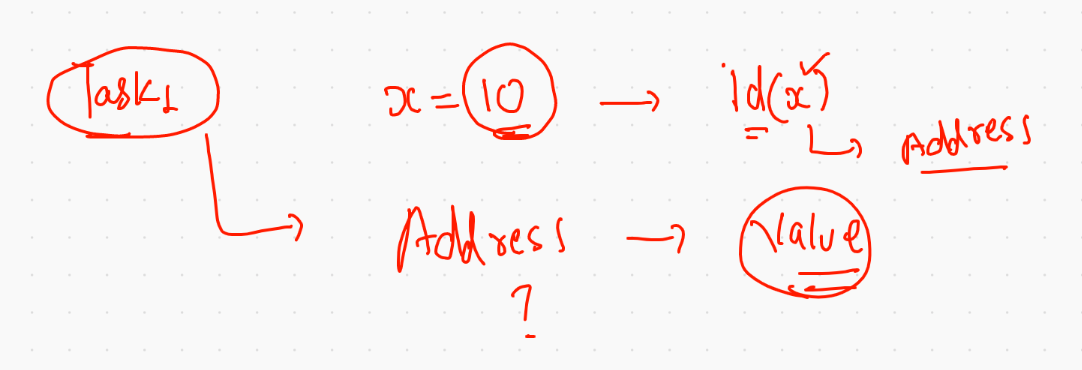 Task1
x = 10 → id(x)
Address
Address → Value
?